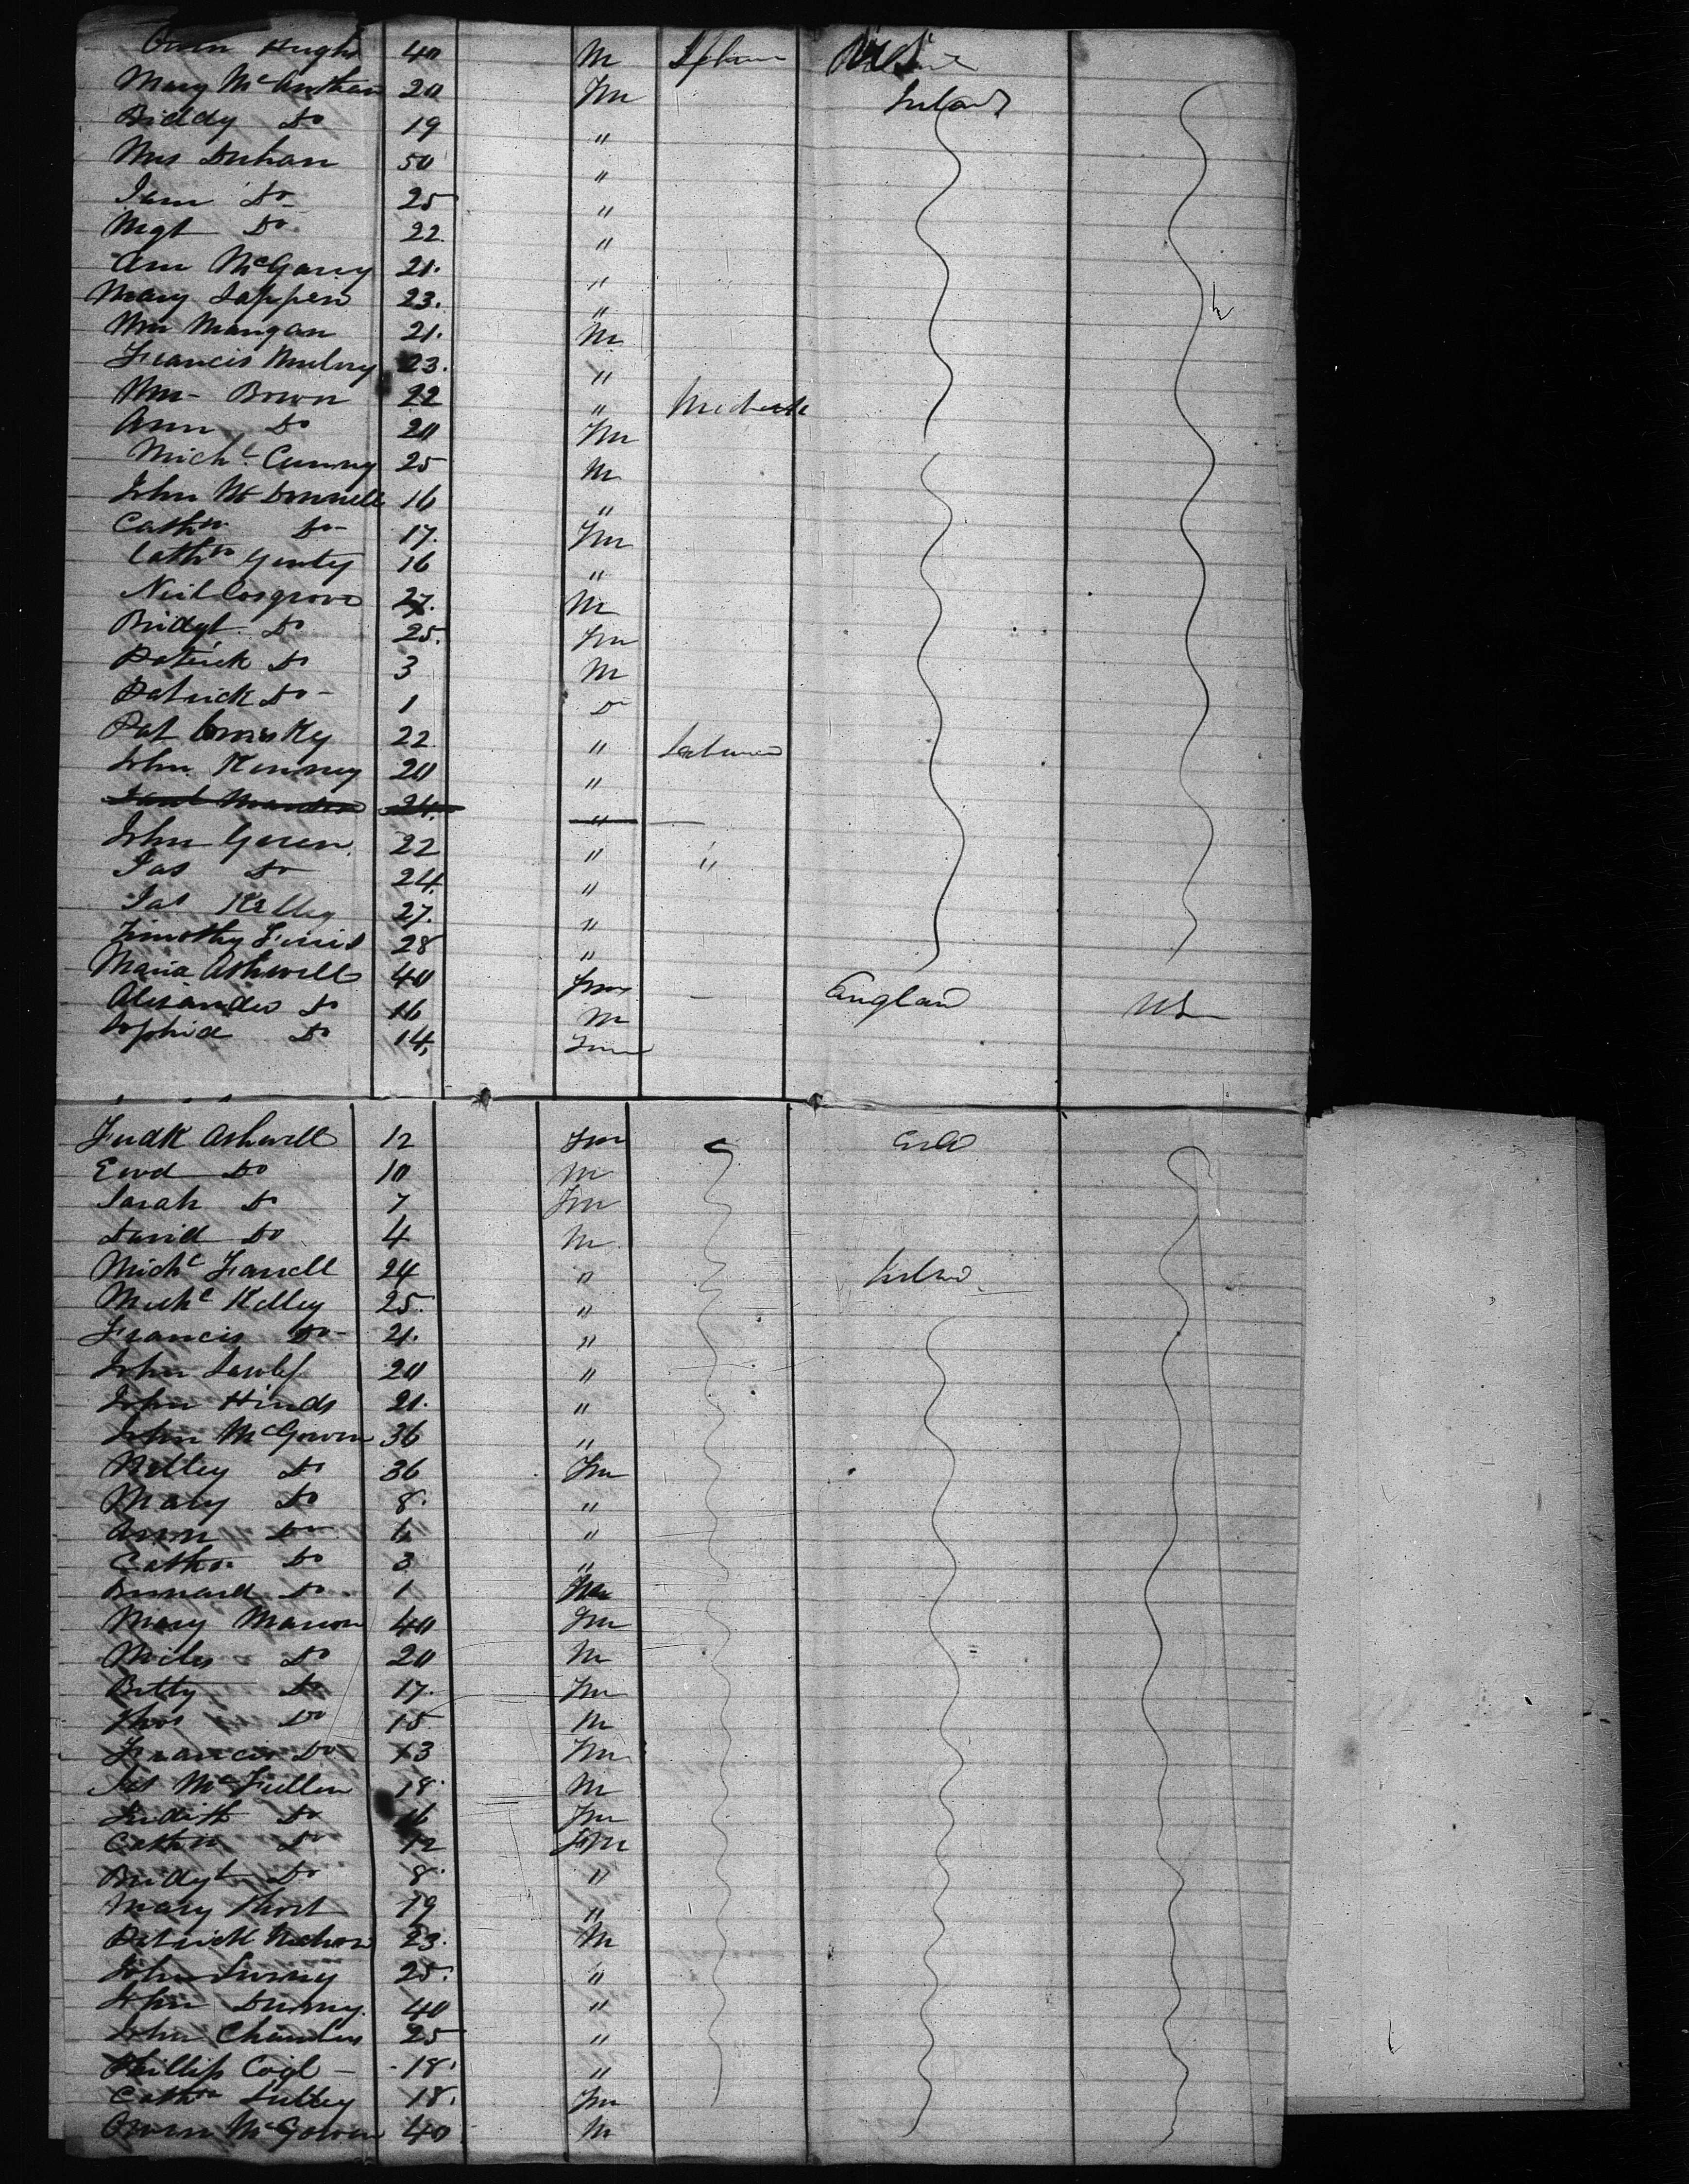 Owen Hughs 40 M
Mary McAnthan 20 Fm Ireland
Biddy Do 19 "
Mrs Duhan 50 "
Jem Do 25 "
Mgt Do 22 "
Ann McGarry 21 "
Mary Tappen 23 "
Wm Mangan 21 M
Francis Mulvy 23 "
Wm Brown 22 "
Ann Do 20 Fm
Michl Cummy 25 M
John McDonnell 16 "
Cathn Do 17 Fm
Cathn Ginty 16 "
Neil Cosgrove 27 M
Bridgt Do 25 Fm
Patrick Do 3 M
Patrick Do 1 Do
Pat Comisky 22 " Labourer
John Kenney 20 "
24 "
John Geren 22 " "
Jas Do 24 "
Jas Kelley 27 "
Timothy Ferris 28 "
Maria Ashwell 40 Fm England US
Alexander Do 16 M
Sophia Do 14 Fm
Fredk Ashwell 12 Fm
Ewd Do 10 M
Sarah Do 7 Fm
David Do 4 M
Michl Farrell 24 " Ireland
Michl Kelley 25 "
Francis Do 21 "
John 20 "
John Hinds 21 "
John McGowen 36 "
Nelley Do 36 Fm
Mary Do 8 "
Ann Do 6 "
Cathn Do 3 "
Bernard Do 1
Mary Marion 40 Fm
Miles Do 20 M
Betty Do 17 Fm
Thos Do 15 M
Francis Do 13 Fm
Jas McFullen 18 M
Judith Do 16 Fm
Cathn Do 12 Fm
Bridgt Do 8 "
Mary Short 19 "
Patrick 23 M
John 25 "
John Dunny 40 "
John Chambers 25 "
Phillip Cogl 18 "
Cathn Lulley 18 Fm
Owen McGowen 40 M